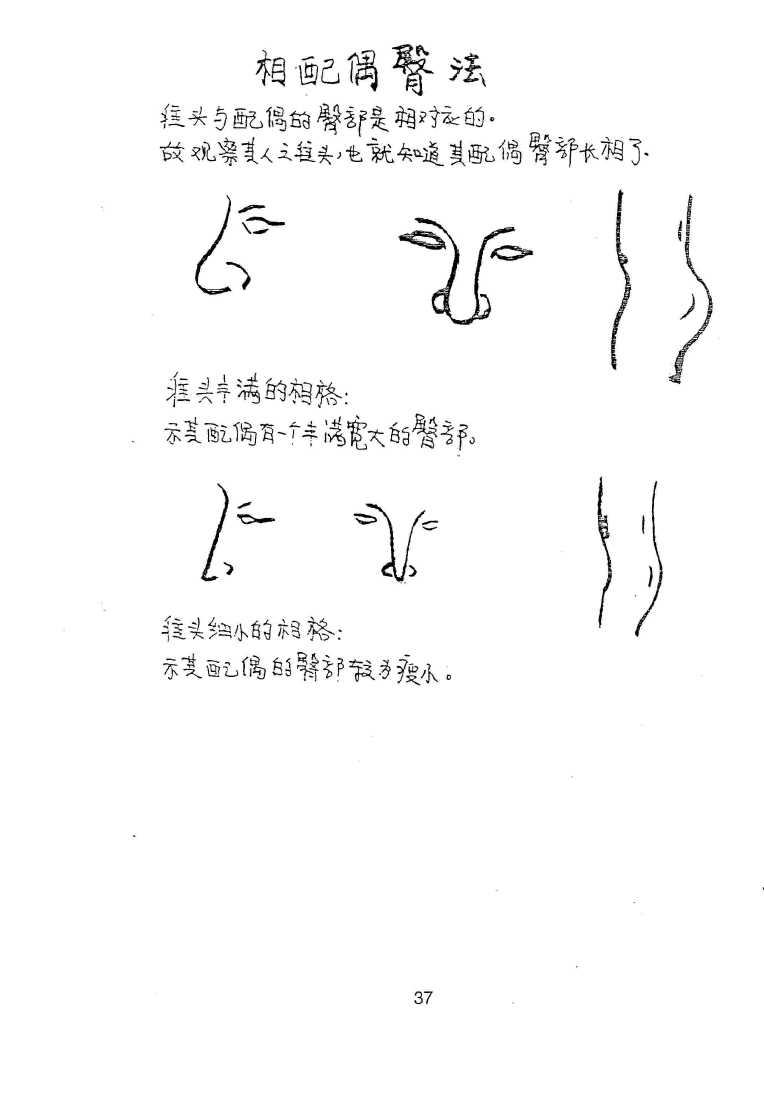 相配偶臀法
准头与配偶的臀部是相对应的。
故观察其人之准头,也就知道其配偶臀部长相了.
准头丰满的相格:
示其配偶有一个丰满宽大的臀部。
准头细小的相格:
示其配偶的臀部较为瘦小。
37